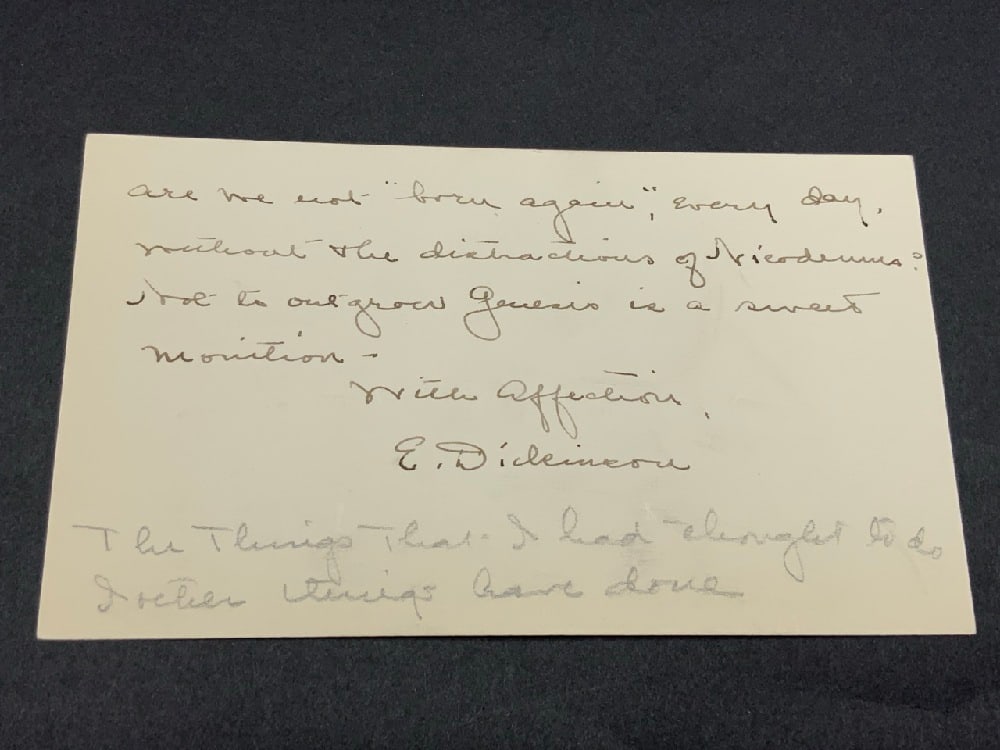 are we not "born again", every day,
without the distractions of Nicodemus?
Not to outgrow Genesis is a sweet
monition -
With Affection,
E. Dickinson
The Things That I had thought to do
I other things have done